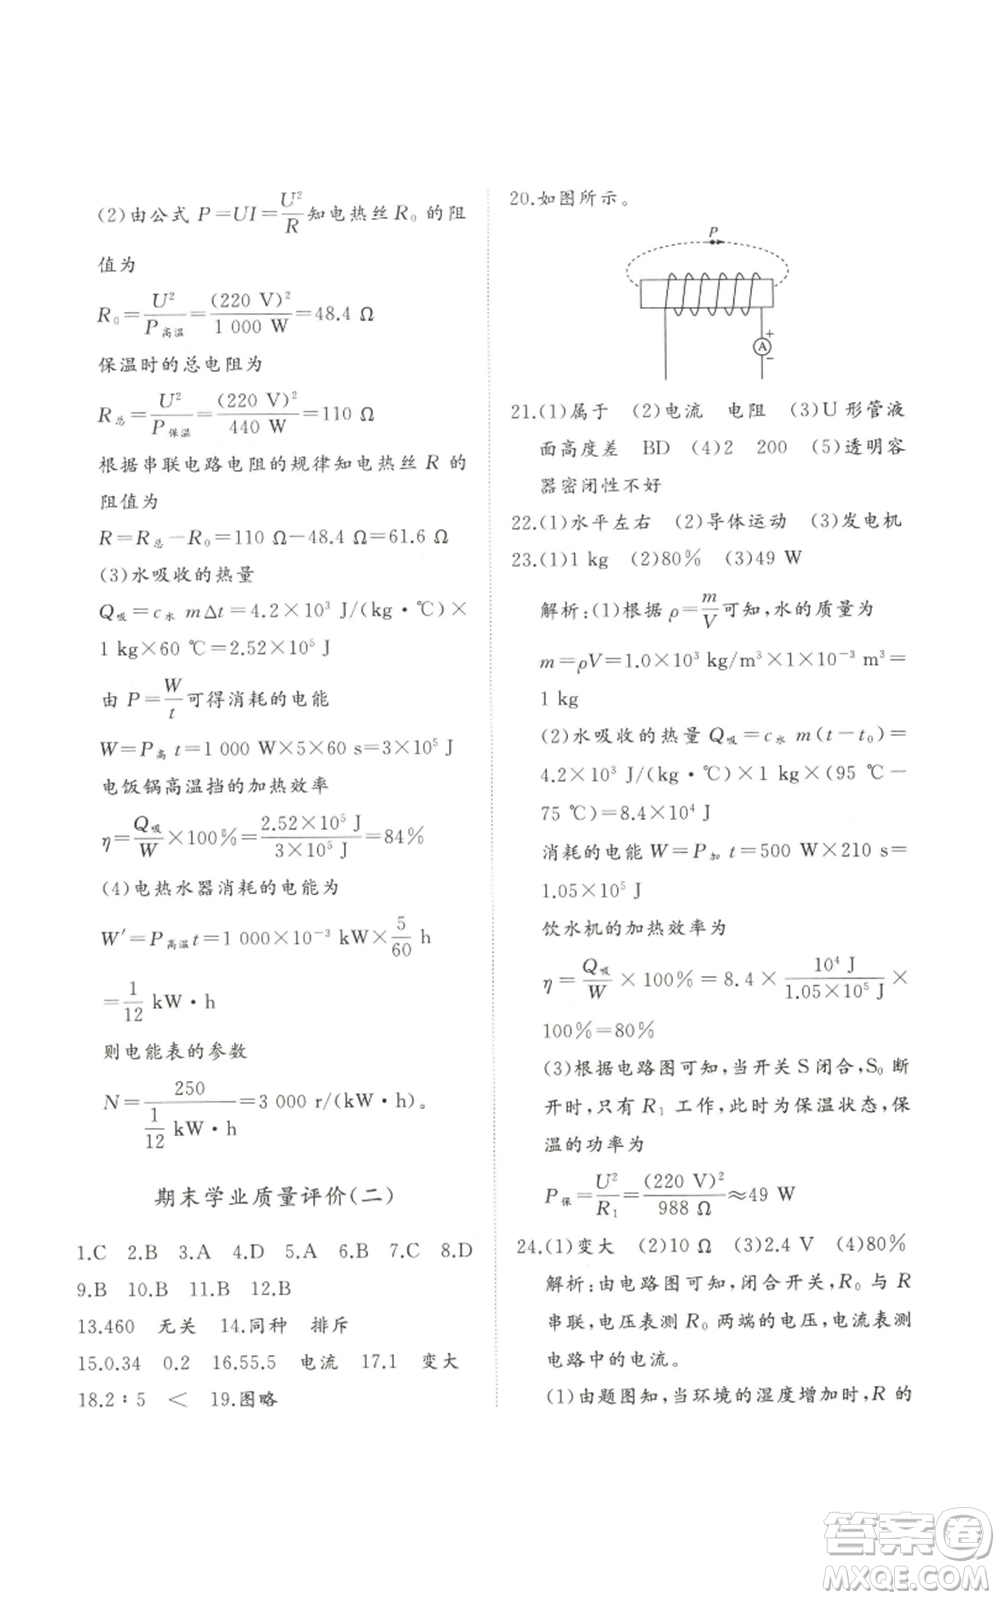 (2)由公式 P=UI=U²/R 知电热丝 R₀ 的阻
值为
R₀=U²/P高温=(220 V)²/1 000 W=48.4 Ω
保温时的总电阻为
R总=U²/P保温=(220 V)²/440 W=110 Ω
根据串联电路电阻的规律知电热丝 R 的
阻值为
R=R总−R₀=110 Ω−48.4 Ω=61.6 Ω
(3)水吸收的热量
Q吸=c水 mΔt=4.2×10³ J/(kg·℃)×
1 kg×60 ℃=2.52×10⁵ J
由 P=W/t 可得消耗的电能
W=P高 t=1 000 W×5×60 s=3×10⁵ J
电饭锅高温挡的加热效率
η=Q吸/W×100%=2.52×10⁵ J/3×10⁵ J=84%
(4)电热水器消耗的电能为
W′=P高温t=1 000×10⁻³ kW×5/60 h
=1/12 kW·h
则电能表的参数
N=250/(1/12 kW·h)=3 000 r/(kW·h)。
期末学业质量评价(二)
1.C 2.B 3.A 4.D 5.A 6.B 7.C 8.D
9.B 10.B 11.B 12.B
13.460 无关 14.同种 排斥
15.0.34 0.2 16.55.5 电流 17.1 变大
18.2∶5 < 19.图略
20.如图所示。
P
A
+
−
21.(1)属于 (2)电流 电阻 (3)U 形管液
面高度差 BD (4)2 200 (5)透明容
器密闭性不好
22.(1)水平左右 (2)导体运动 (3)发电机
23.(1)1 kg (2)80% (3)49 W
解析:(1)根据 ρ=m/V 可知,水的质量为
m=ρV=1.0×10³ kg/m³×1×10⁻³ m³=
1 kg
(2)水吸收的热量 Q吸=c水 m(t−t₀)=
4.2×10³ J/(kg·℃)×1 kg×(95 ℃−
75 ℃)=8.4×10⁴ J
消耗的电能 W=P加 t=500 W×210 s=
1.05×10⁵ J
饮水机的加热效率为
η=Q吸/W×100%=8.4×10⁴ J/1.05×10⁵ J×
100%=80%
(3)根据电路图可知,当开关 S 闭合,S₀ 断
开时,只有 R₁ 工作,此时为保温状态,保
温的功率为
P保=U²/R₁=(220 V)²/988 Ω≈49 W
24.(1)变大 (2)10 Ω (3)2.4 V (4)80%
解析:由电路图可知,闭合开关,R₀ 与 R
串联,电压表测 R₀ 两端的电压,电流表测
电路中的电流。
(1)由题图知,当环境的湿度增加时,R 的
答案圈
MXQE.COM